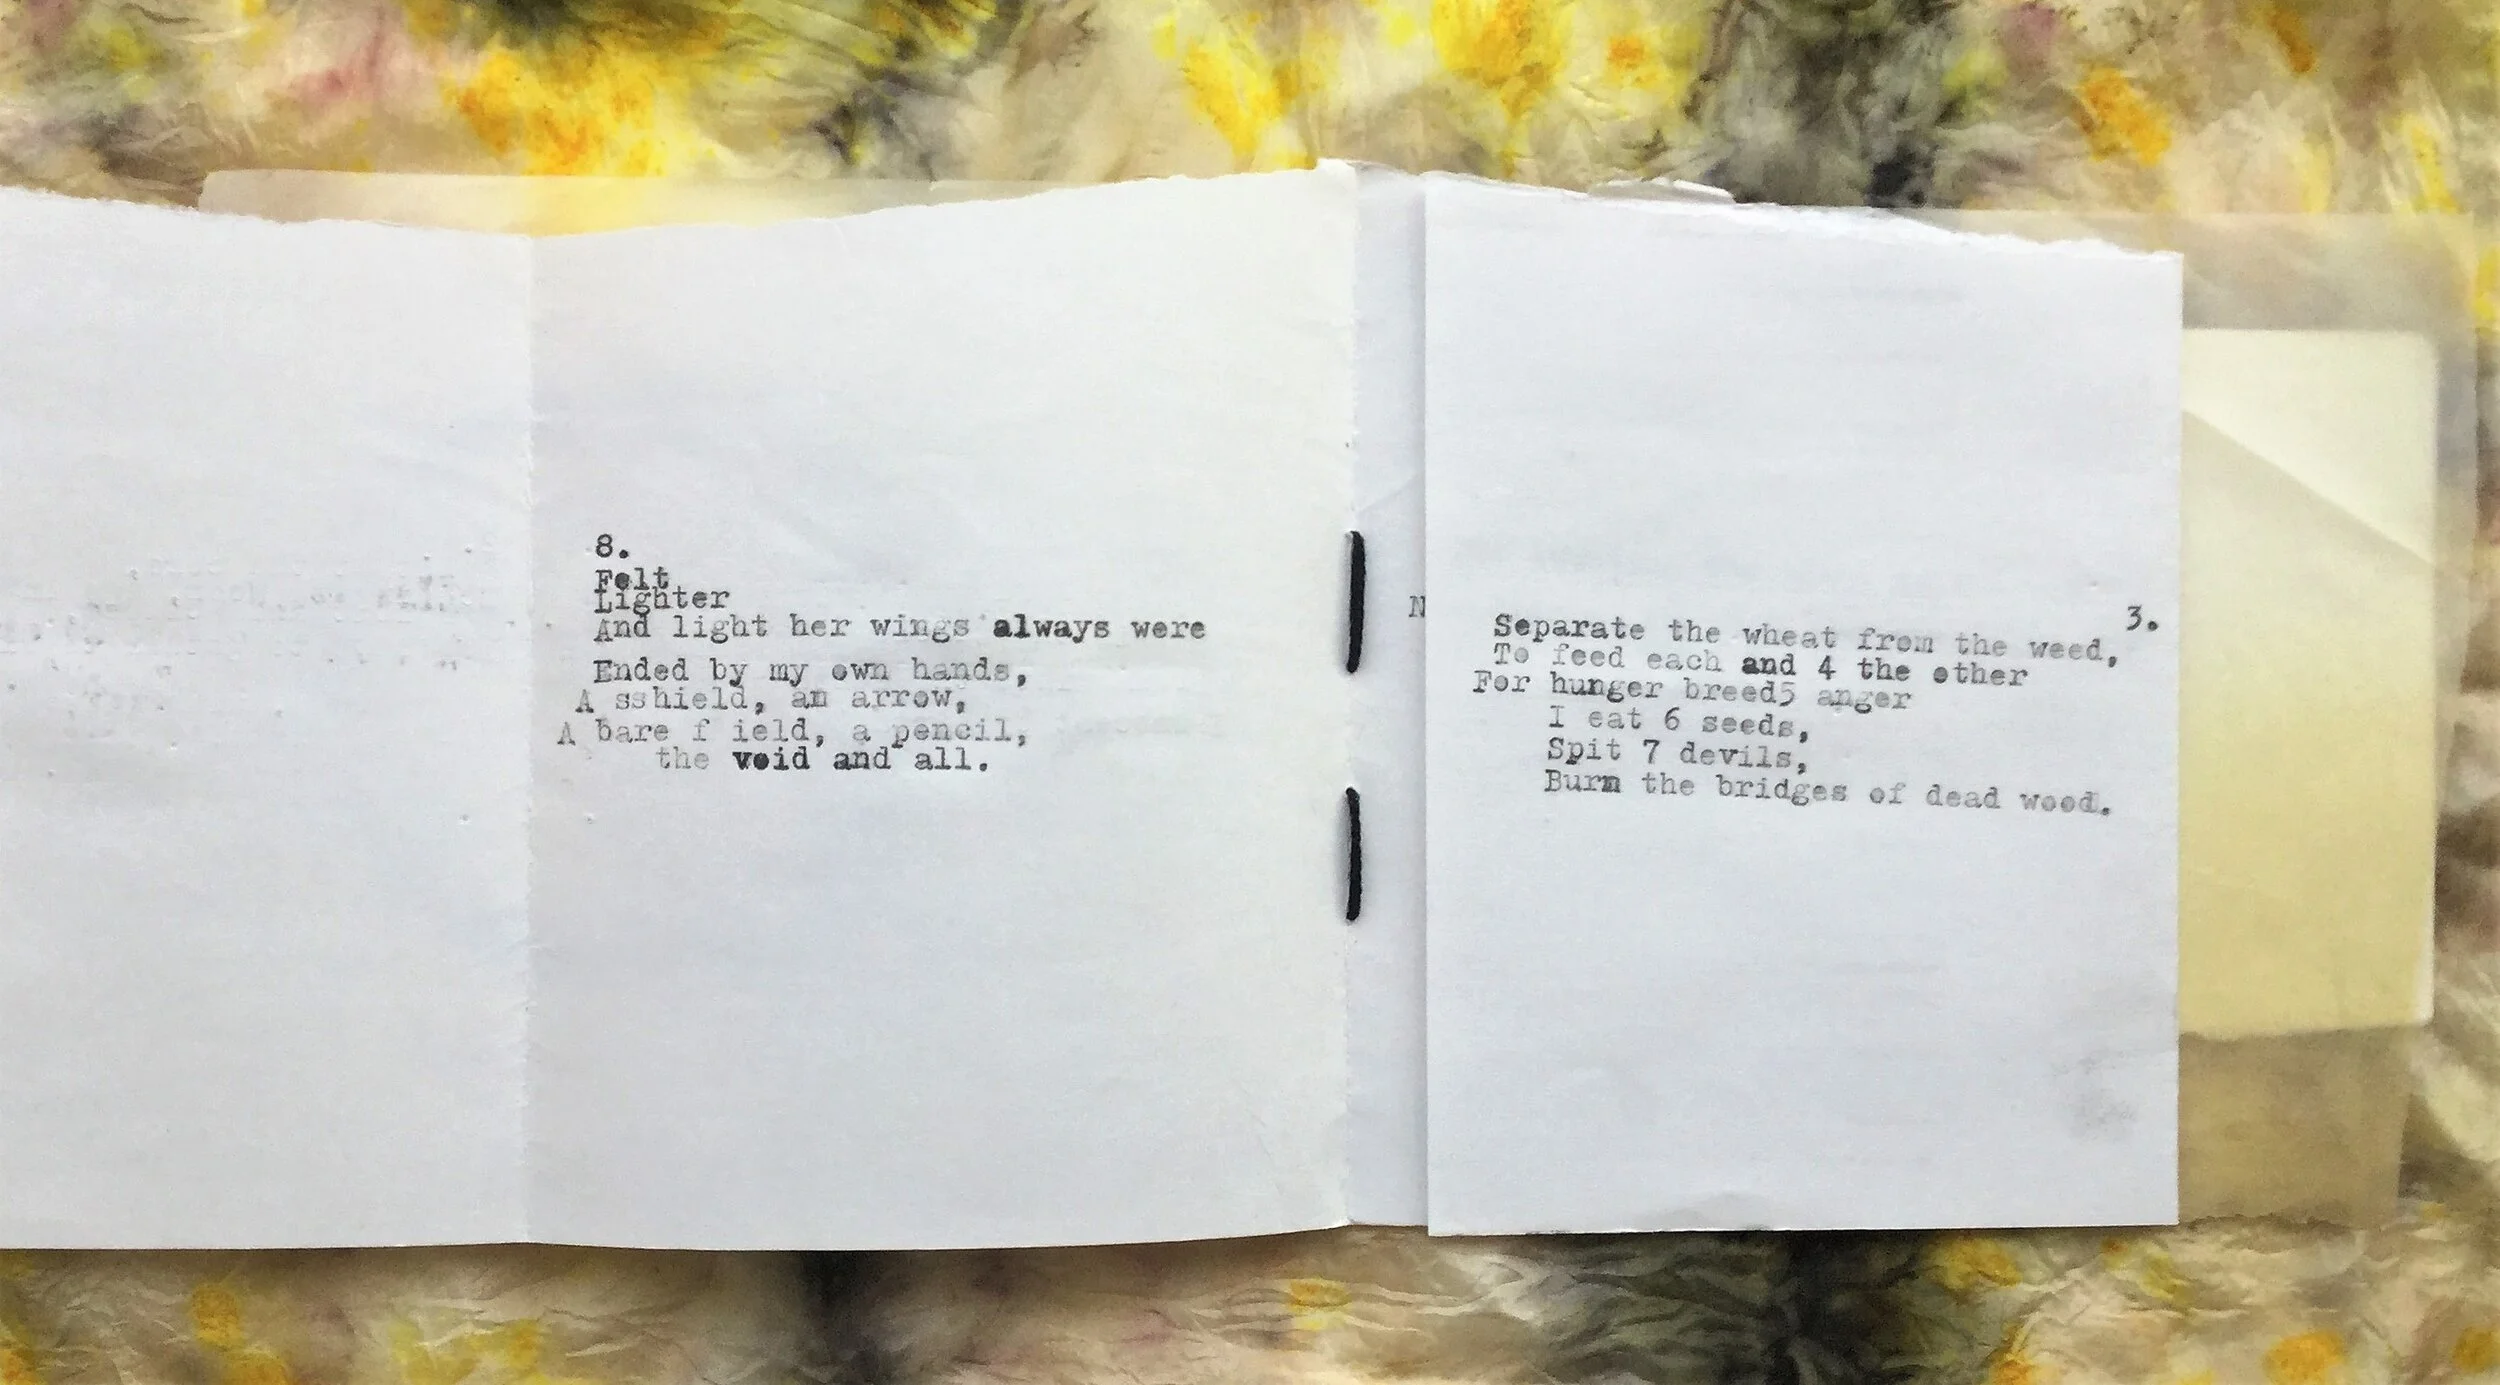 8.
Felt
Lighter
And light her wings always were
Ended by my own hands,
A sshield, an arrow,
A bare f ield, a pencil,
the void and all.
N
3.
Separate the wheat from the weed,
To feed each and 4 the other
For hunger breed5 anger
I eat 6 seeds,
Spit 7 devils,
Burn the bridges of dead wood.